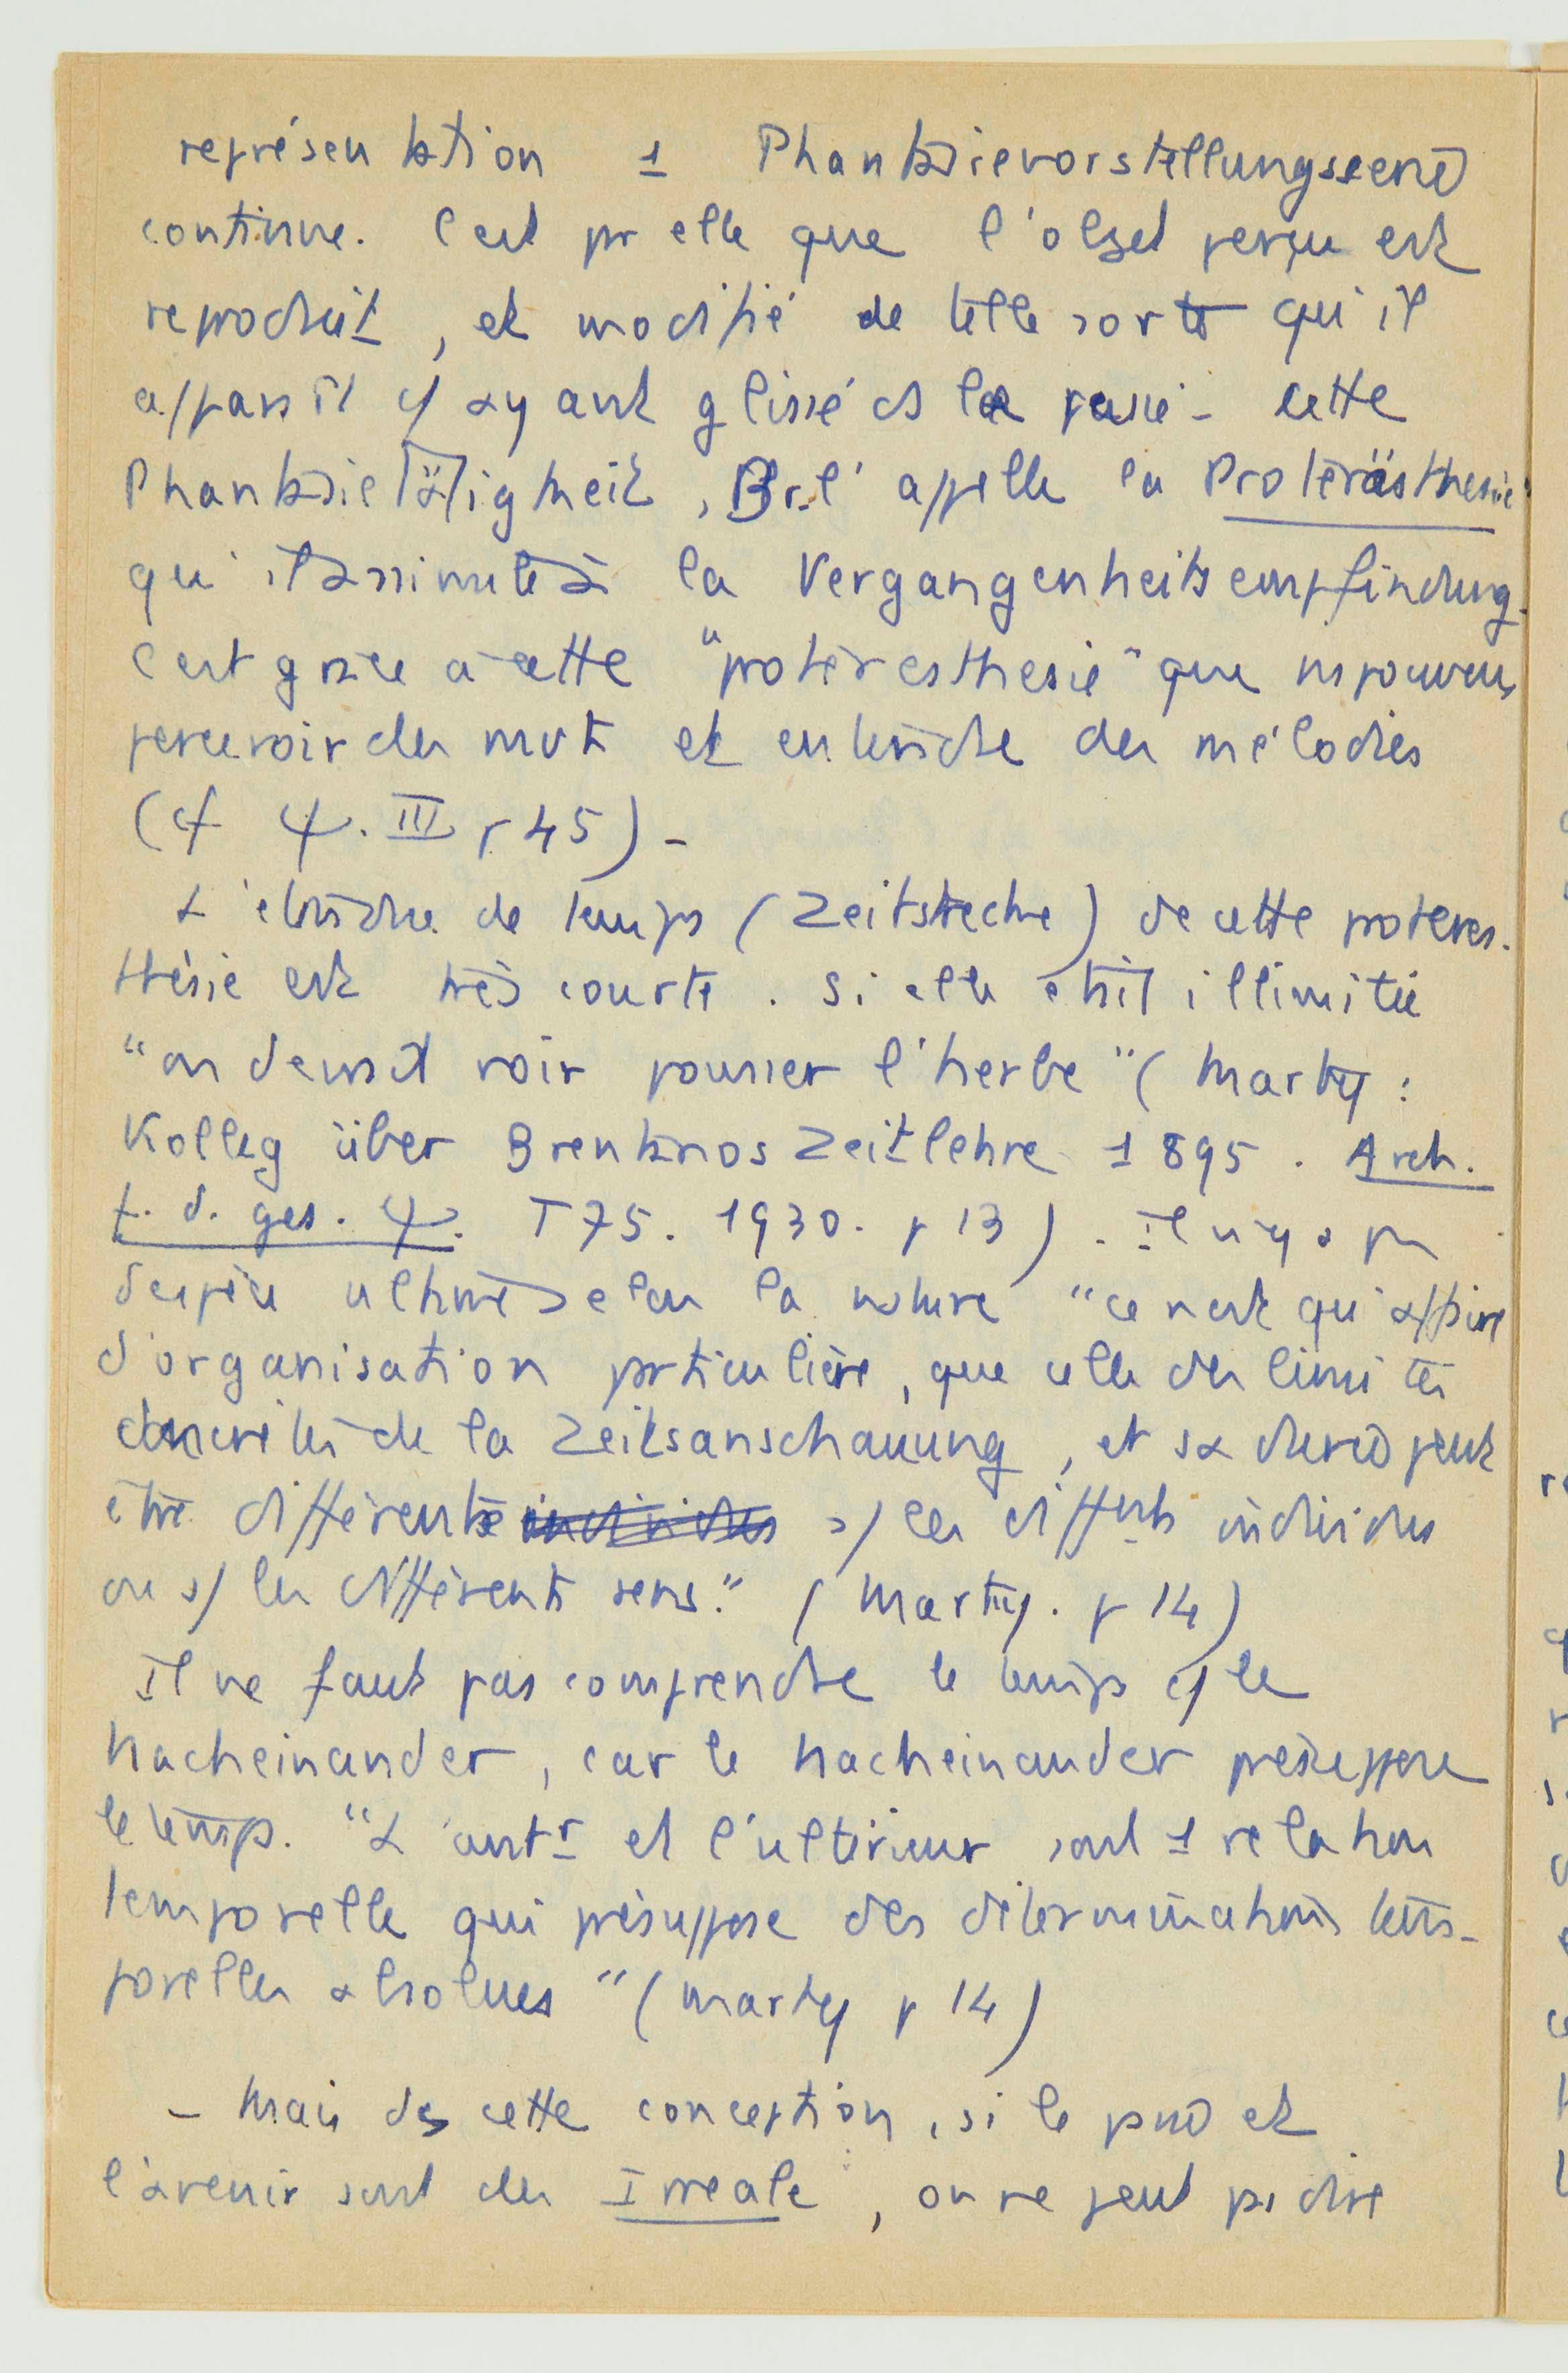 représentation 1 Phantasievorstellungsserie
continue. C'est pr elle que l'objet perçu est
reproduit, et modifié de telle sorte qu'il
apparaît c/ ayant glissé ds le passé - cette
Phantasietätigkeit, Br. l'appelle la Proterästhesie
qu'il assimile à la Vergangenheitsempfindung.
C'est grâce à cette "proteresthesie" que ns pouvons
percevoir des mvts et entendre des mélodies
(cf ψ. III p 45) -
L'étendue de temps (Zeitstrecke) de cette proteres-
thésie est très courte. Si elle était illimitée
"on devrait voir pousser l'herbe" (Marty :
Kolleg über Brentanos Zeitlehre 1895. Arch.
f. d. ges. ψ. T 75. 1930. p 13). Il n'y a pas
ultime selon la nature "ce n'est qu'affaire
d'organisation particulière, que celle des limites
de la Zeitsanschauung, et sa durée peut
être différente s/ les diffts individus
ou s/ les différents sens." (Marty. p 14)
Il ne faut pas comprendre le temps c/ le
Nacheinander, car le Nacheinander présuppose
le temps. "L'antr et l'ultérieur sont 1 relation
temporelle qui présuppose des déterminations tem-
porelles absolues" (Marty p 14)
- Mais ds cette conception, si le passé et
l'avenir sont des Irreale, on ne peut pas dire